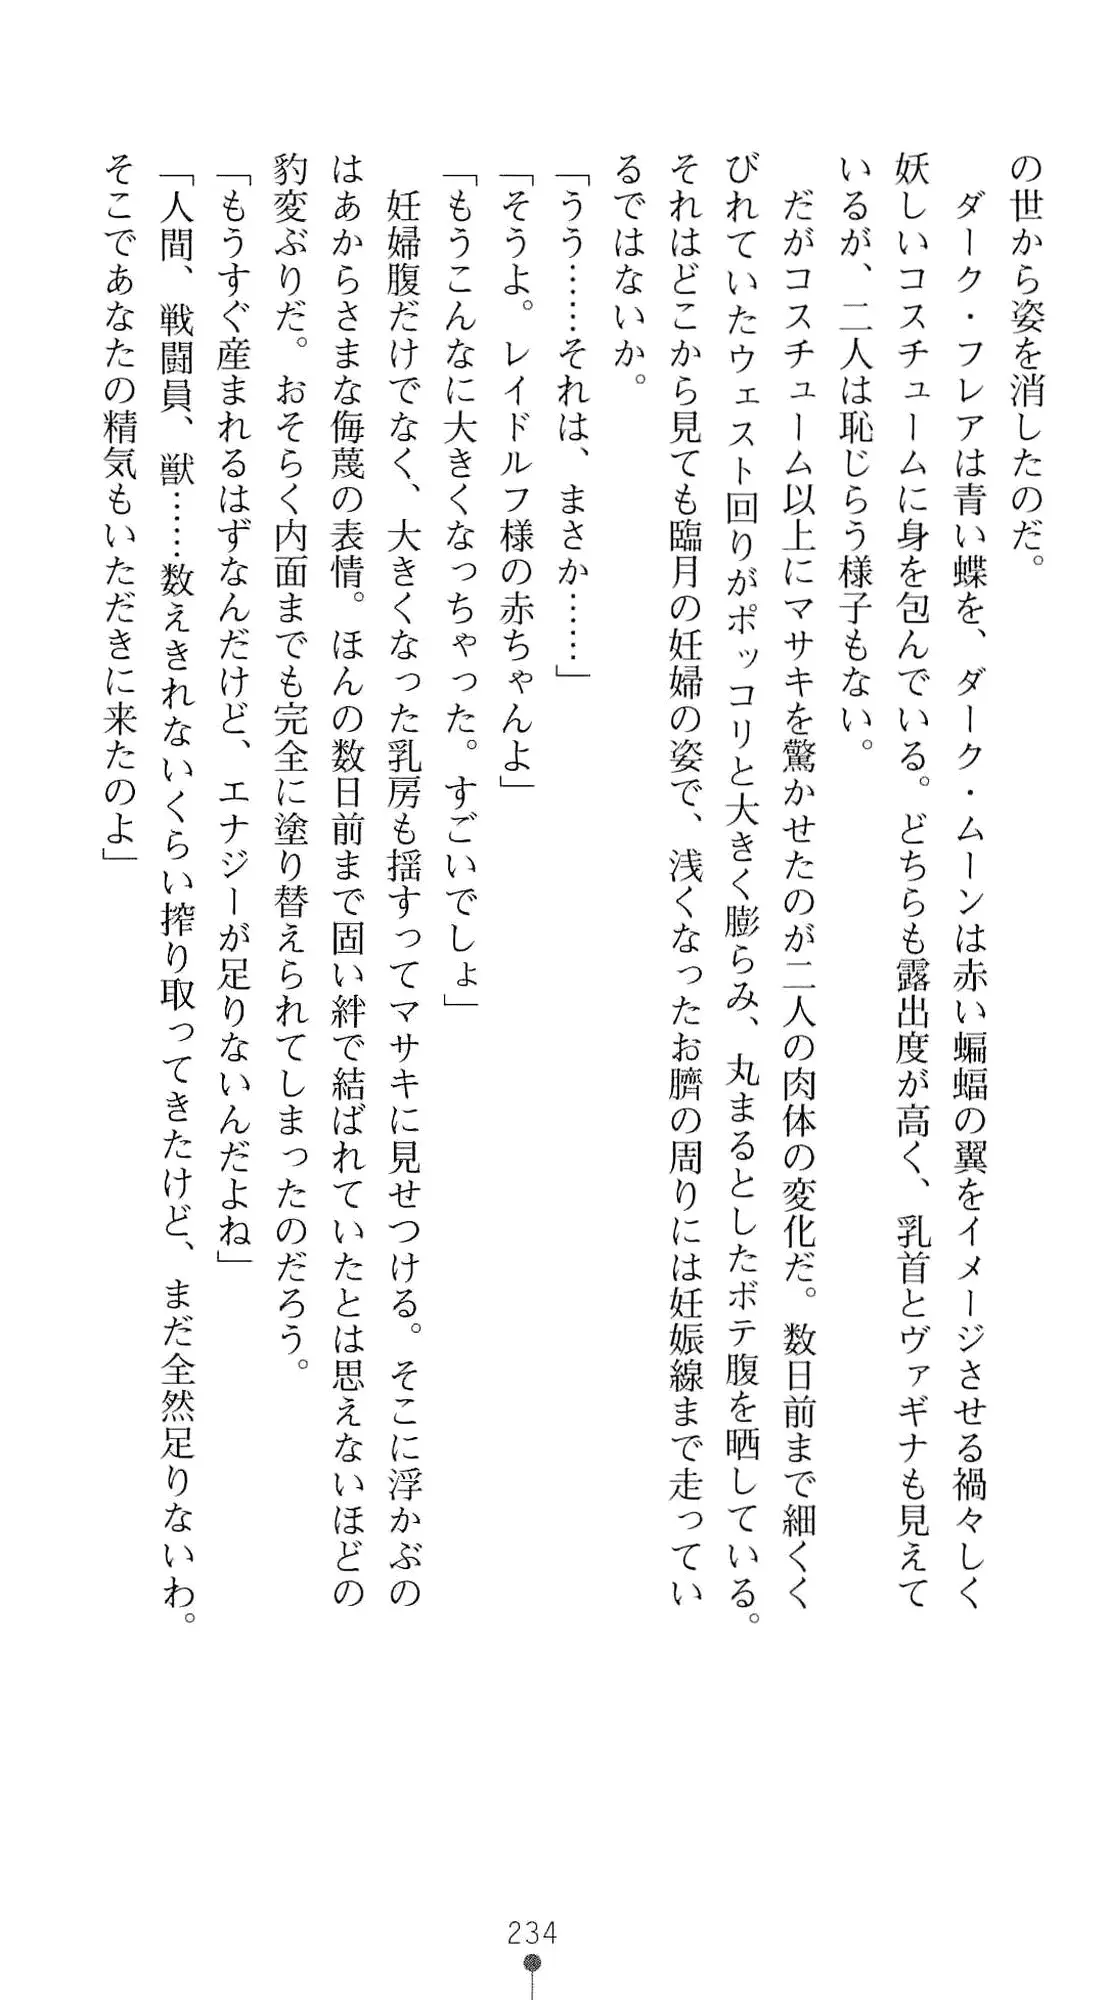 の世から姿を消したのだ。
　ダーク・フレアは青い蝶を、ダーク・ムーンは赤い蝙蝠の翼をイメージさせる禍々しく
妖しいコスチュームに身を包んでいる。どちらも露出度が高く、乳首とヴァギナも見えて
いるが、二人は恥じらう様子もない。
　だがコスチューム以上にマサキを驚かせたのが二人の肉体の変化だ。数日前まで細くく
びれていたウェスト回りがポッコリと大きく膨らみ、丸まるとしたボテ腹を晒している。
それはどこから見ても臨月の妊婦の姿で、浅くなったお臍の周りには妊娠線まで走ってい
るではないか。
「うう……それは、まさか……」
「そうよ。レイドルフ様の赤ちゃんよ」
「もうこんなに大きくなっちゃった。すごいでしょ」
　妊婦腹だけでなく、大きくなった乳房も揺すってマサキに見せつける。そこに浮かぶの
はあからさまな侮蔑の表情。ほんの数日前まで固い絆で結ばれていたとは思えないほどの
豹変ぶりだ。おそらく内面までも完全に塗り替えられてしまったのだろう。
「もうすぐ産まれるはずなんだけど、エナジーが足りないんだよね」
「人間、戦闘員、獣……数えきれないくらい搾り取ってきたけど、まだ全然足りないわ。
そこであなたの精気もいただきに来たのよ」
234